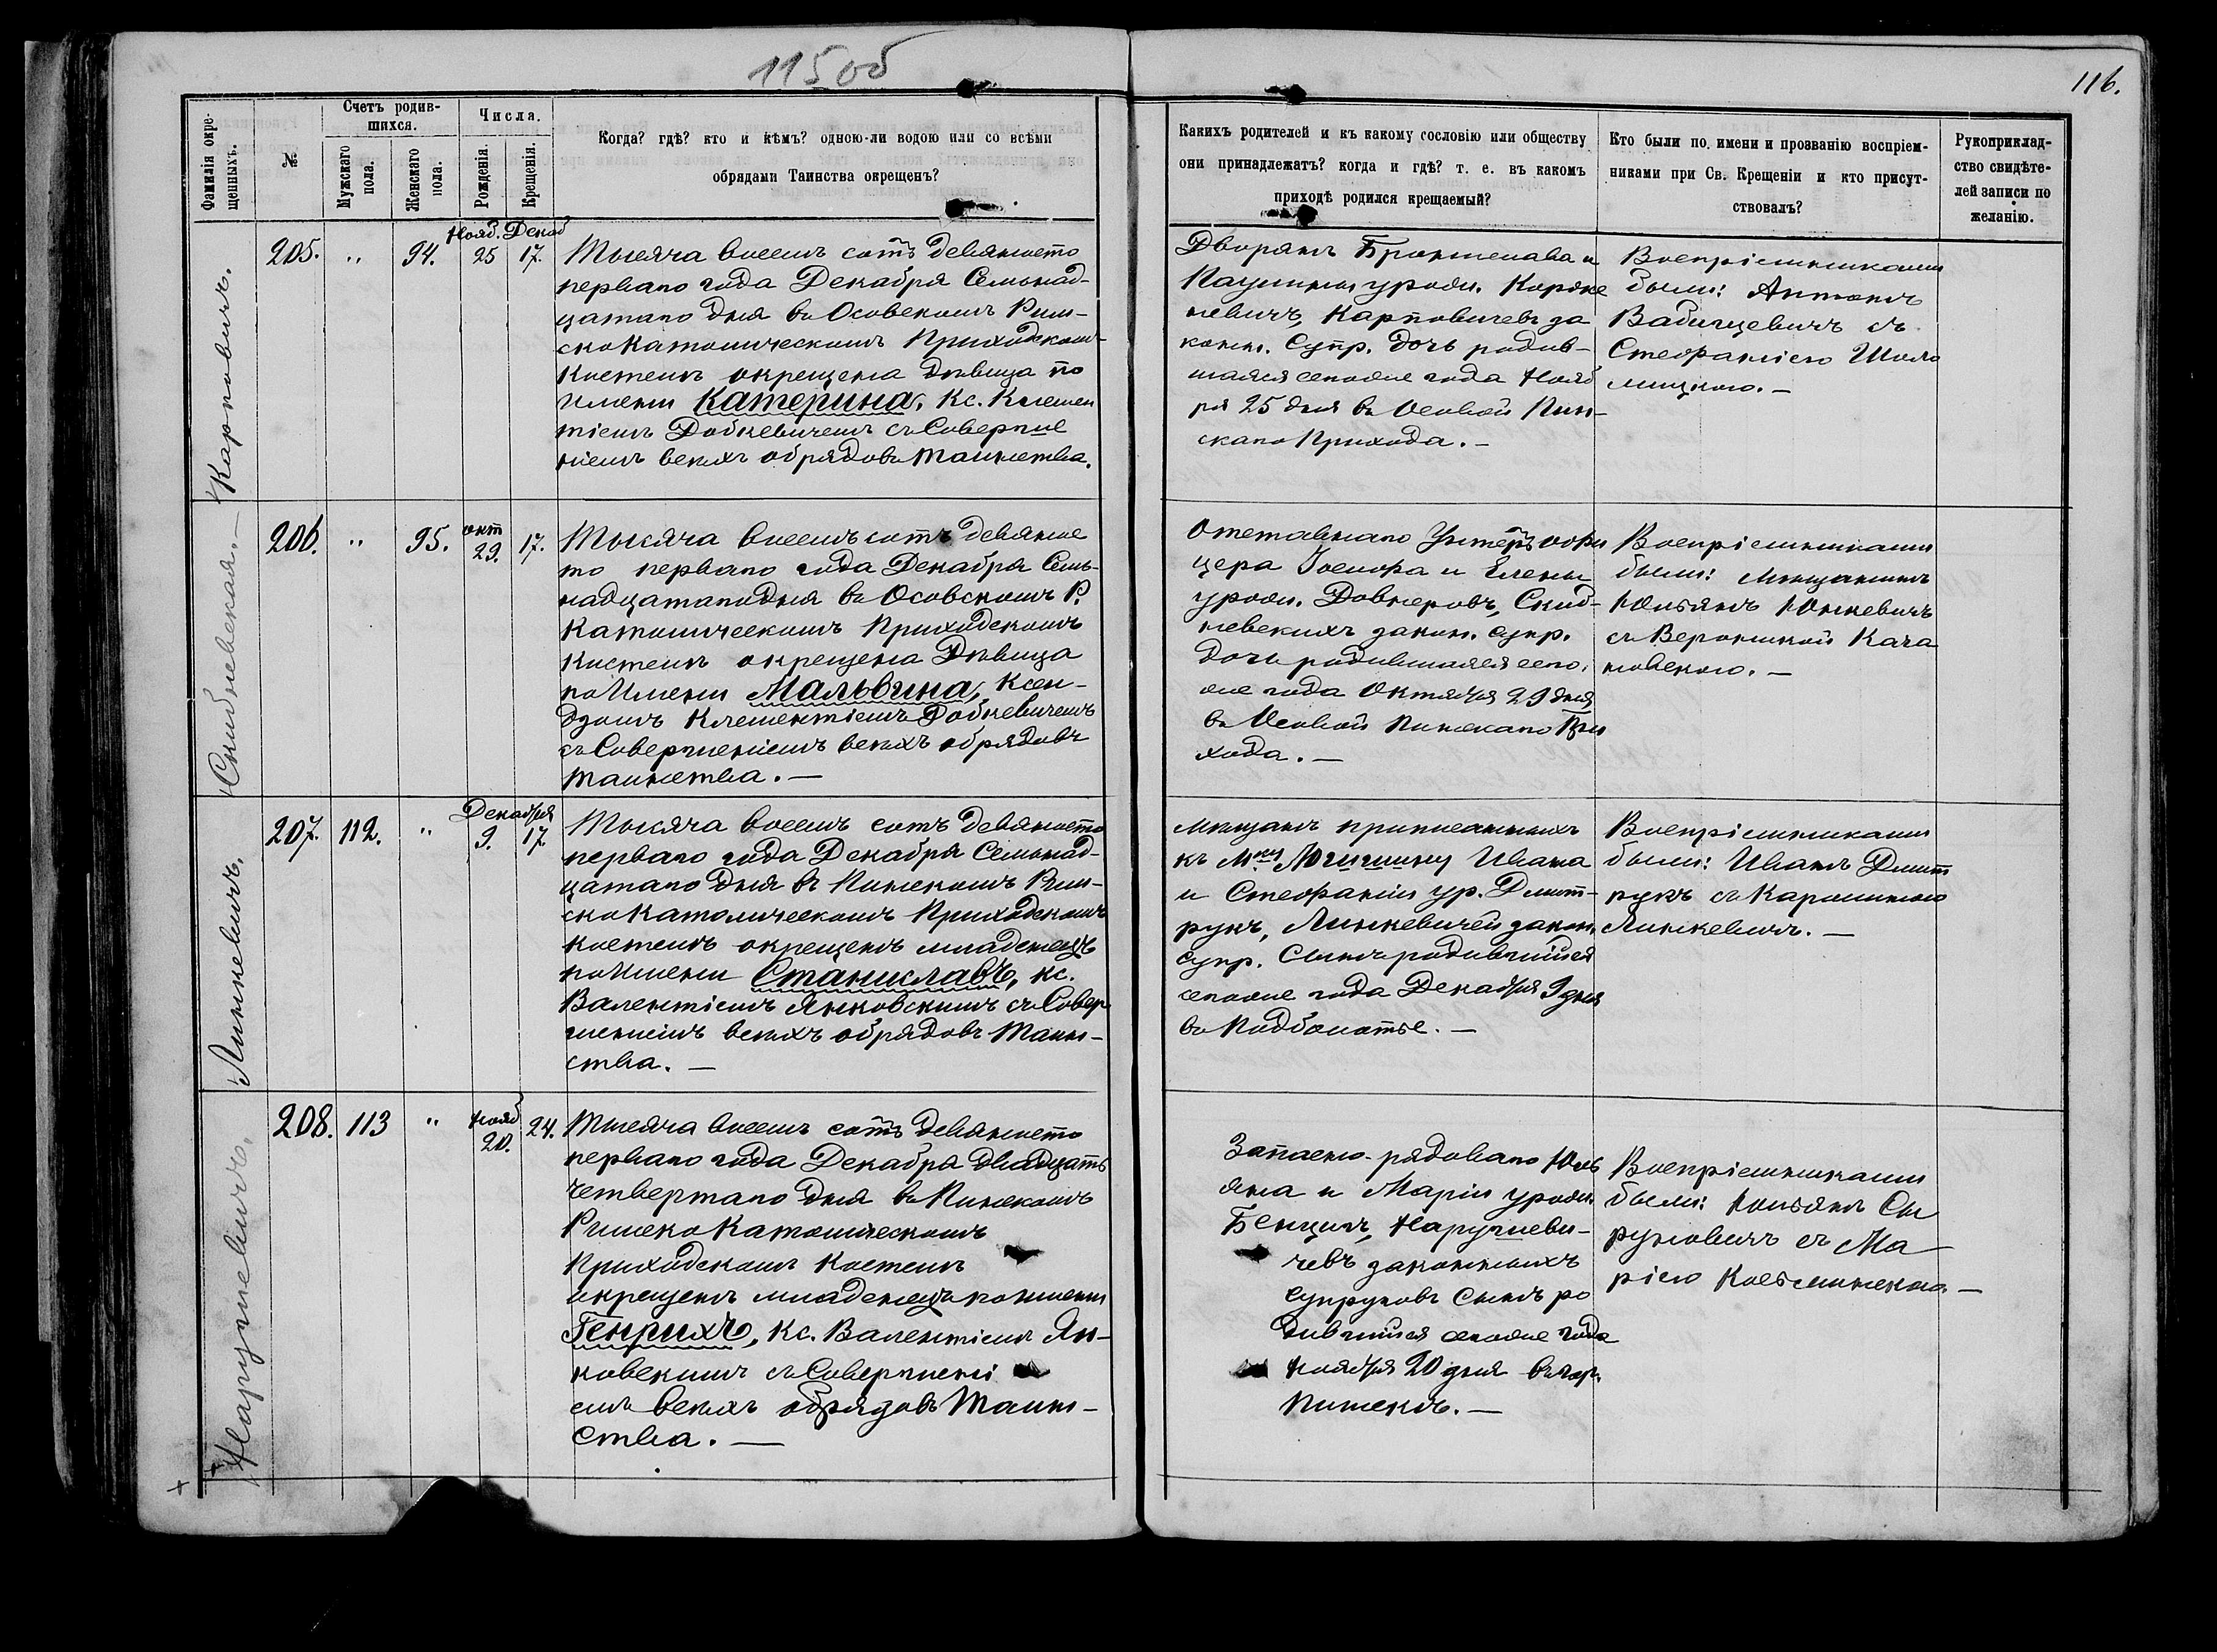 115 об
116.
Фамилія окре-
щенныхъ.
№.
Счетъ родив-
шихся.
Мужскаго
пола.
Женскаго
пола.
Числа.
Рожденія.
Крещенія.
Когда? гдѣ? кто и кѣмъ? одною-ли водою или со всѣми
обрядами Таинства окрещенъ?
Какихъ родителей и къ какому сословію или обществу
они принадлежатъ? когда и гдѣ? т. е. въ какомъ
приходѣ родился крещаемый?
Кто были по имени и прозванію воспріем-
никами при Св. Крещеніи и кто присут-
ствовалъ?
Рукоприклад-
ство свидѣте-
лей записи по
желанію.
Карповичъ.
205. " 94. Нояб. 25 Декаб 17.
Тысяча восемъ сотъ девяносто
перваго года Декабря Семьнад-
цатаго дня въ Осовскомъ Рим-
ско Католическомъ Приходском
Костелѣ окрещена дѣвица по
имени Катерина, Кс. Клемен
тіемъ Добкевичемъ съ Соверше
ніемъ всѣхъ обрядовъ таинства.
Дворянъ Бронислава и
Паулины урожд.
невичъ, Карповичевъ за
конн. Супр. дочь родив-
шаяся сегоже года Нояб
ря 25 дня въ Осовой Пин-
скаго Прихода. —
Воспріемниками
были: Антонъ
съ
Стефаніею
—
Скибневская —
206. " 95. окт 29. 17.
Тысяча восемъ сотъ девянос
то перваго года Декабря Семь-
надцатаго дня въ Осовскомъ Р.
Католическомъ Приходскомъ
Костелѣ окрещена Дѣвица
по Имени Мальвина, Ксен-
дзомъ Клементіемъ Добкевичемъ
съ Совершеніемъ всѣхъ обрядовъ
таинства. —
Отставнаго Унтеръ офи
цера Іосифа и Елены
урожд. Довнеровъ, Скиб-
невскихъ закон. супр.
дочь родившаяся сего
же года Октября 29 дня
въ Осовой Пинскаго При
хода. —
Воспріемниками
были: Мѣщанинъ
Юльянъ Юшкевичъ
съ Вероникой Кача
новскою. —
Линкевичъ.
207. 112. " Декабря 9. 17
Тысяча восемъ сотъ девяносто
перваго года Декабря Семьнад-
цатаго дня въ Пинскомъ Рим-
ско Католическомъ Приходскомъ
костелѣ окрещенъ младенецъ
по Имени Станиславъ, кс.
Валентіемъ Янковскимъ съ Совер
шеніемъ всѣхъ обрядовъ Таин-
ства. —
Мѣщанъ приписанныхъ
къ М-ку Логишину Ивана
и Стефаніи ур. Дмит-
рукъ, Линкевичей закон.
супр. Сынъ родившійся
сегоже года Декабря 9 дня
въ Подболотье. —
Воспріемниками
были: Иванъ Дмит
рукъ съ Каролиною
Линкевичъ. —
Нарушевичъ.
208. 113 " Нояб 20. 24.
Тысяча восемъ сотъ девяносто
перваго года Декабря двадцать
четвертаго дня въ Пинскомъ
Римско Католическомъ
Приходскомъ Костелѣ
окрещенъ младенецъ по имени
Генрихъ, Кс. Валентіемъ Ян-
ковскимъ съ Совершені
емъ всѣхъ обрядовъ Таин-
ства. —
Запасно-рядоваго Юль
яна и Маріи урожд.
Нарушеви-
чевъ законныхъ
супруговъ Сынъ ро
дившійся сегоже года
Ноября 20 дня въ гор.
Пинскѣ. —
Воспріемниками
были: Юльянъ
съ Ма
ріею —